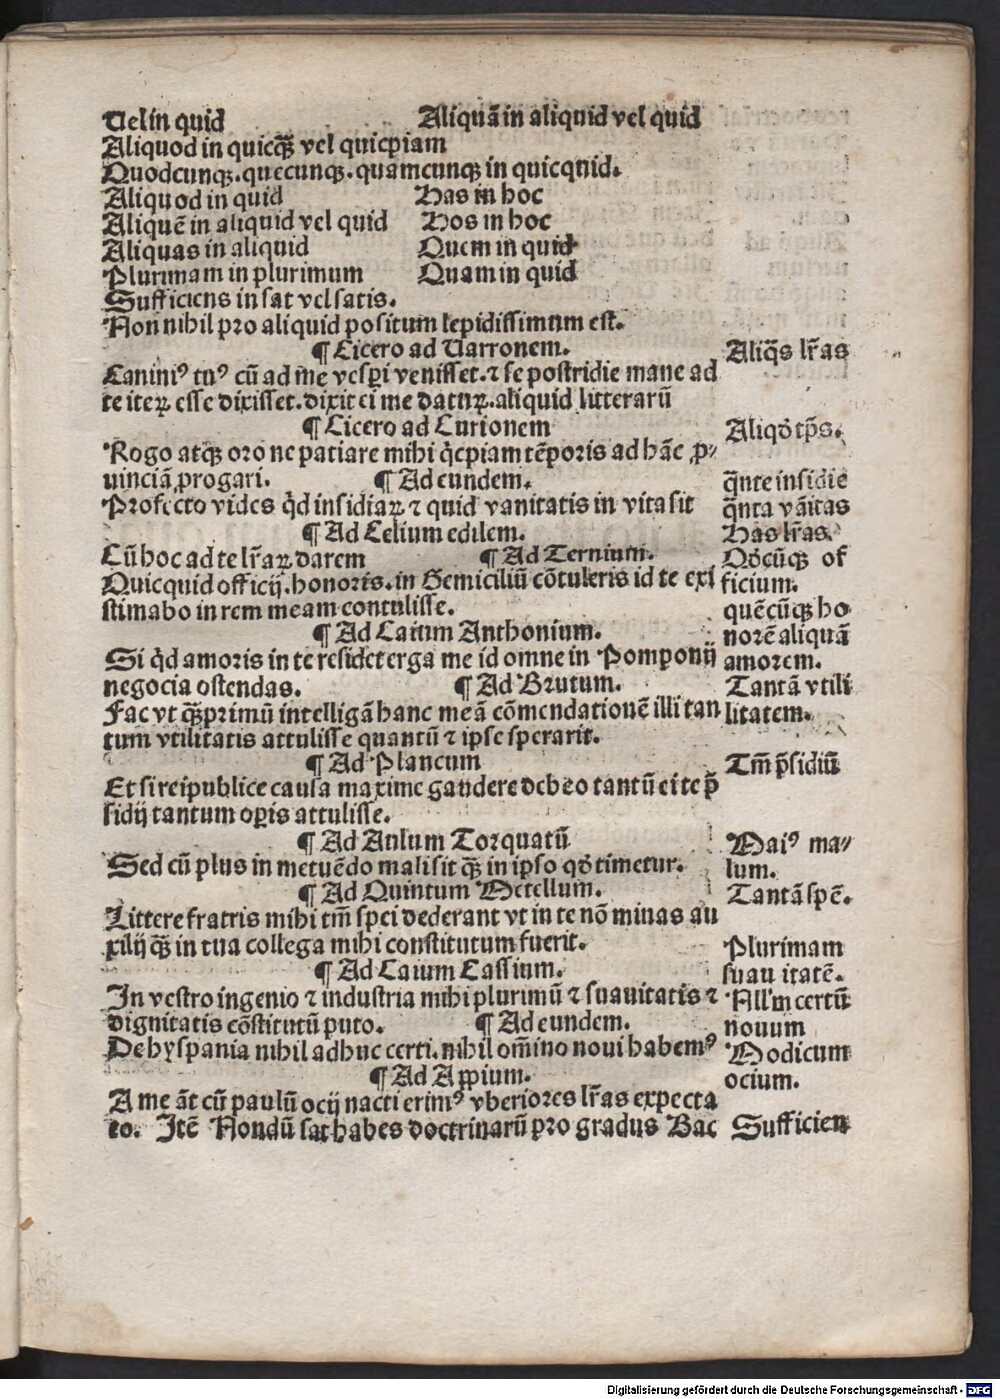 Uel in quid Aliquā in aliquid vel quid
Aliquod in quicq̄ʒ vel quicpiam
Quodcunqʒ. quecunqʒ. quamcunqʒ in quicquid.
Aliquod in quid Has in hoc
Aliquē in aliquid vel quid Hos in hoc
Aliquas in aliquid Quem in quid
Plurimam in plurimum Quam in quid
Sufficiens in sat vel satis.
Non nihil pro aliquid positum lepidissimum est.
¶ Cicero ad Uarronem.
Caniniꝰ tuꝰ cū ad me vesperi venisset. ⁊ se postridie mane ad
te iteꝝ esse dixisset. dixit ei me datuꝝ. aliquid litterarū
¶ Cicero ad Curionem
Rogo atqʒ oro ne patiare mihi q̇cpiam tēporis ad hāc ꝓ⸗
uinciā ꝓrogari. ¶ Ad eundem.
Profecto vides q̇d insidiaꝝ ⁊ quid vanitatis in vita sit
¶ Ad Celium edilem.
Cū hoc ad te lr̄aꝝ darem ¶ Ad Ternium.
Quicquid officij. honoris. in Gemiciliū cōtuleris id te exi
stimabo in rem meam contulisse.
¶ Ad Caium Anthonium.
Si q̇d amoris in te residet erga me id omne in Pomponij
negocia ostendas. ¶ Ad Brutum.
Fac vt q̄ʒprimū intelligā hanc meā cōmendationē illi tan
tum vtilitatis attulisse quantū ⁊ ipse sperarit.
¶ Ad Plancum
Et si reipublice causa maxime gaudere debeo tantū ei te p̄
sidij tantum oꝑis attulisse.
¶ Ad Aulum Torquatū
Sed cū plus in metuēdo mali sit q̄ʒ in ipso qd̓ timetur.
¶ Ad Quintum Metellum.
Littere fratris mihi tm̄ spei dederant vt in te nō minus au
xilij q̄ʒ in tua collega mihi constitutum fuerit.
¶ Ad Caium Cassium.
In vestro ingenio ⁊ industria mihi plurimū ⁊ suauitatis ⁊
dignitatis cōstitutū puto. ¶ Ad eundem.
De hyspania nihil adhuc certi. nihil om̄ino noui habemꝰ
¶ Ad Appium.
A me āt cū paulū ocij nacti erimꝰ vberiores lr̄as expecta
to. Itē Nondū sat habes doctrinarū pro gradus Bac
Aliq̄s lr̄as
Aliqd̓ tp̄s.
q̄nte insidie
q̄nta vāitas
Has lr̄as.
Qd̓cūqʒ of
ficium.
quēcūqʒ ho
norē aliquā
amorem.
Tantā vtili
litatem.
Tm̄ p̄sidiū
Maiꝰ ma⸗
lum.
Tantā spē.
Plurimam
suauitatē.
Nllm̄ certū
nouum
Modicum
ocium.
Sufficien
Digitalisierung gefördert durch die Deutsche Forschungsgemeinschaft - DFG